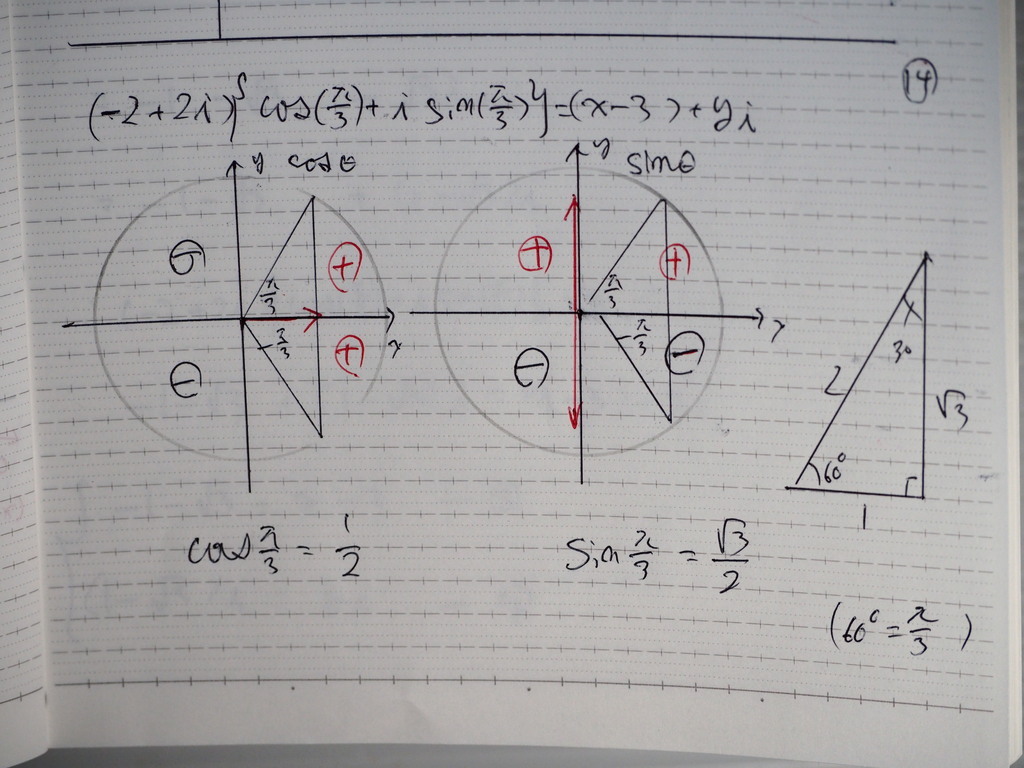 ⑭
(-2+2i){cos(π/3)+i sin(π/3)}=(x-3)+yi
y cosθ
y sinθ
⊖ ⊕
⊕ ⊕
π/3
π/3
x
x
-π/3
-π/3
⊖ ⊕
⊖ ⊖
30
2
√3
60°
1
cos π/3 = 1/2
sin π/3 = √3/2
(60° = π/3)